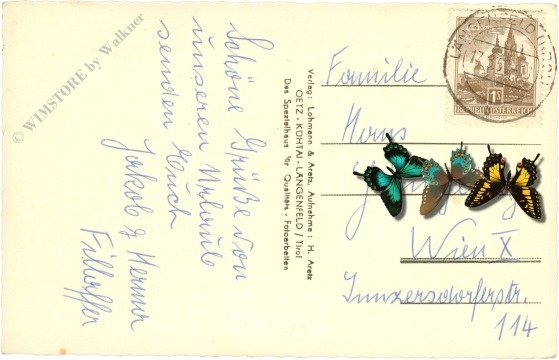 © WIMSTORE by Walkner
Schöne Grüße von
unseren Urlaub
senden Euch
Jakob & Hermine
Verlag: Lohmann & Aretz, Aufnahme: H. Aretz
OETZ - KÜHTAI - LÄNGENFELD / Tirol
Das Spezialhaus für Qualitäts - Fotoarbeiten
LÄNGENFELD
1S
REPUBLIK ÖSTERREICH
Familie
Hans
Wien X
Inzersdorferstr.
114